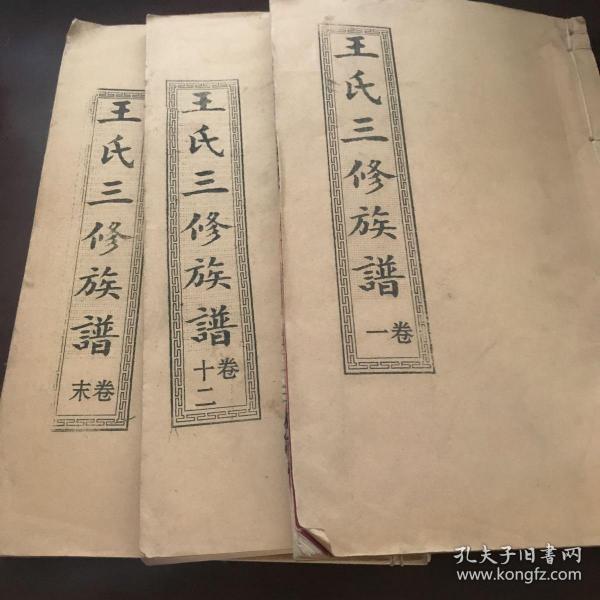 王氏三修族譜
卷末
王氏三修族譜
卷十二
王氏三修族譜
卷一
孔夫子旧书网
www.kongfz.com